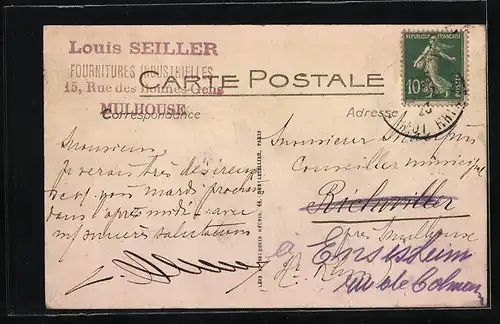 Louis SEILLER
FOURNITURES INDUSTRIELLES
15, Rue des Bonnes Gens
MULHOUSE
CARTE POSTALE
Correspondance
Adresse
REPUBLIQUE FRANÇAISE
10c
POSTES
Monsieur,
Je serais très désireux
vous mardi prochain
dans l'après midi avec
mes salutations
Monsieur
Conseiller municipal
Richwiller
près Mulhouse
Ht. Rhin
a Ensisheim
rue de Colmar